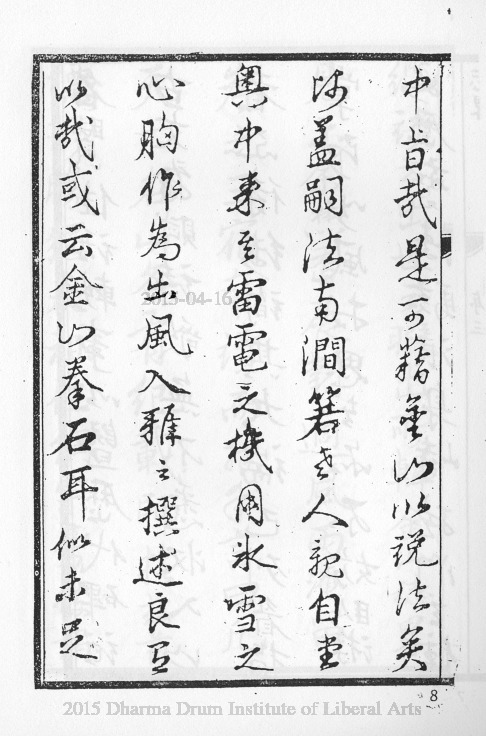 中旨哉是可藉金山以說法矣
師蓋嗣法南澗箬老人親自堂
奧中來其雷電之機用冰雪之
心胸作為出風入雅之撰述良有
以哉或云金山拳石耳似未足
8
2015-04-16
2015 Dharma Drum Institute of Liberal Arts